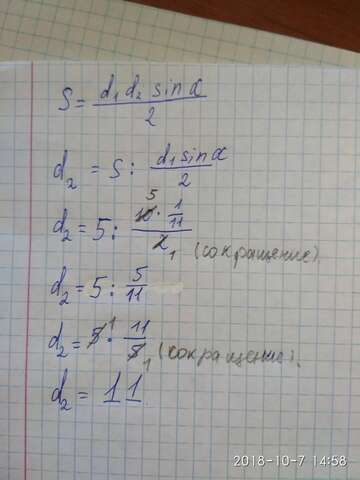 S = d₁ d₂ sin α / 2
d₂ = S : d₁ sin α / 2
d₂ = 5 : 10⁵ · 1/11 / 2₁ (сокращение)
d₂ = 5 : 5/11
d₂ = 5¹ · 11/5₁ (сокращение).
d₂ = 11
2018-10-7 14:58